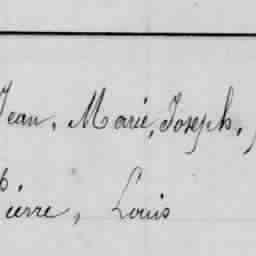 Jean, Marie, Joseph,
Pierre, Louis